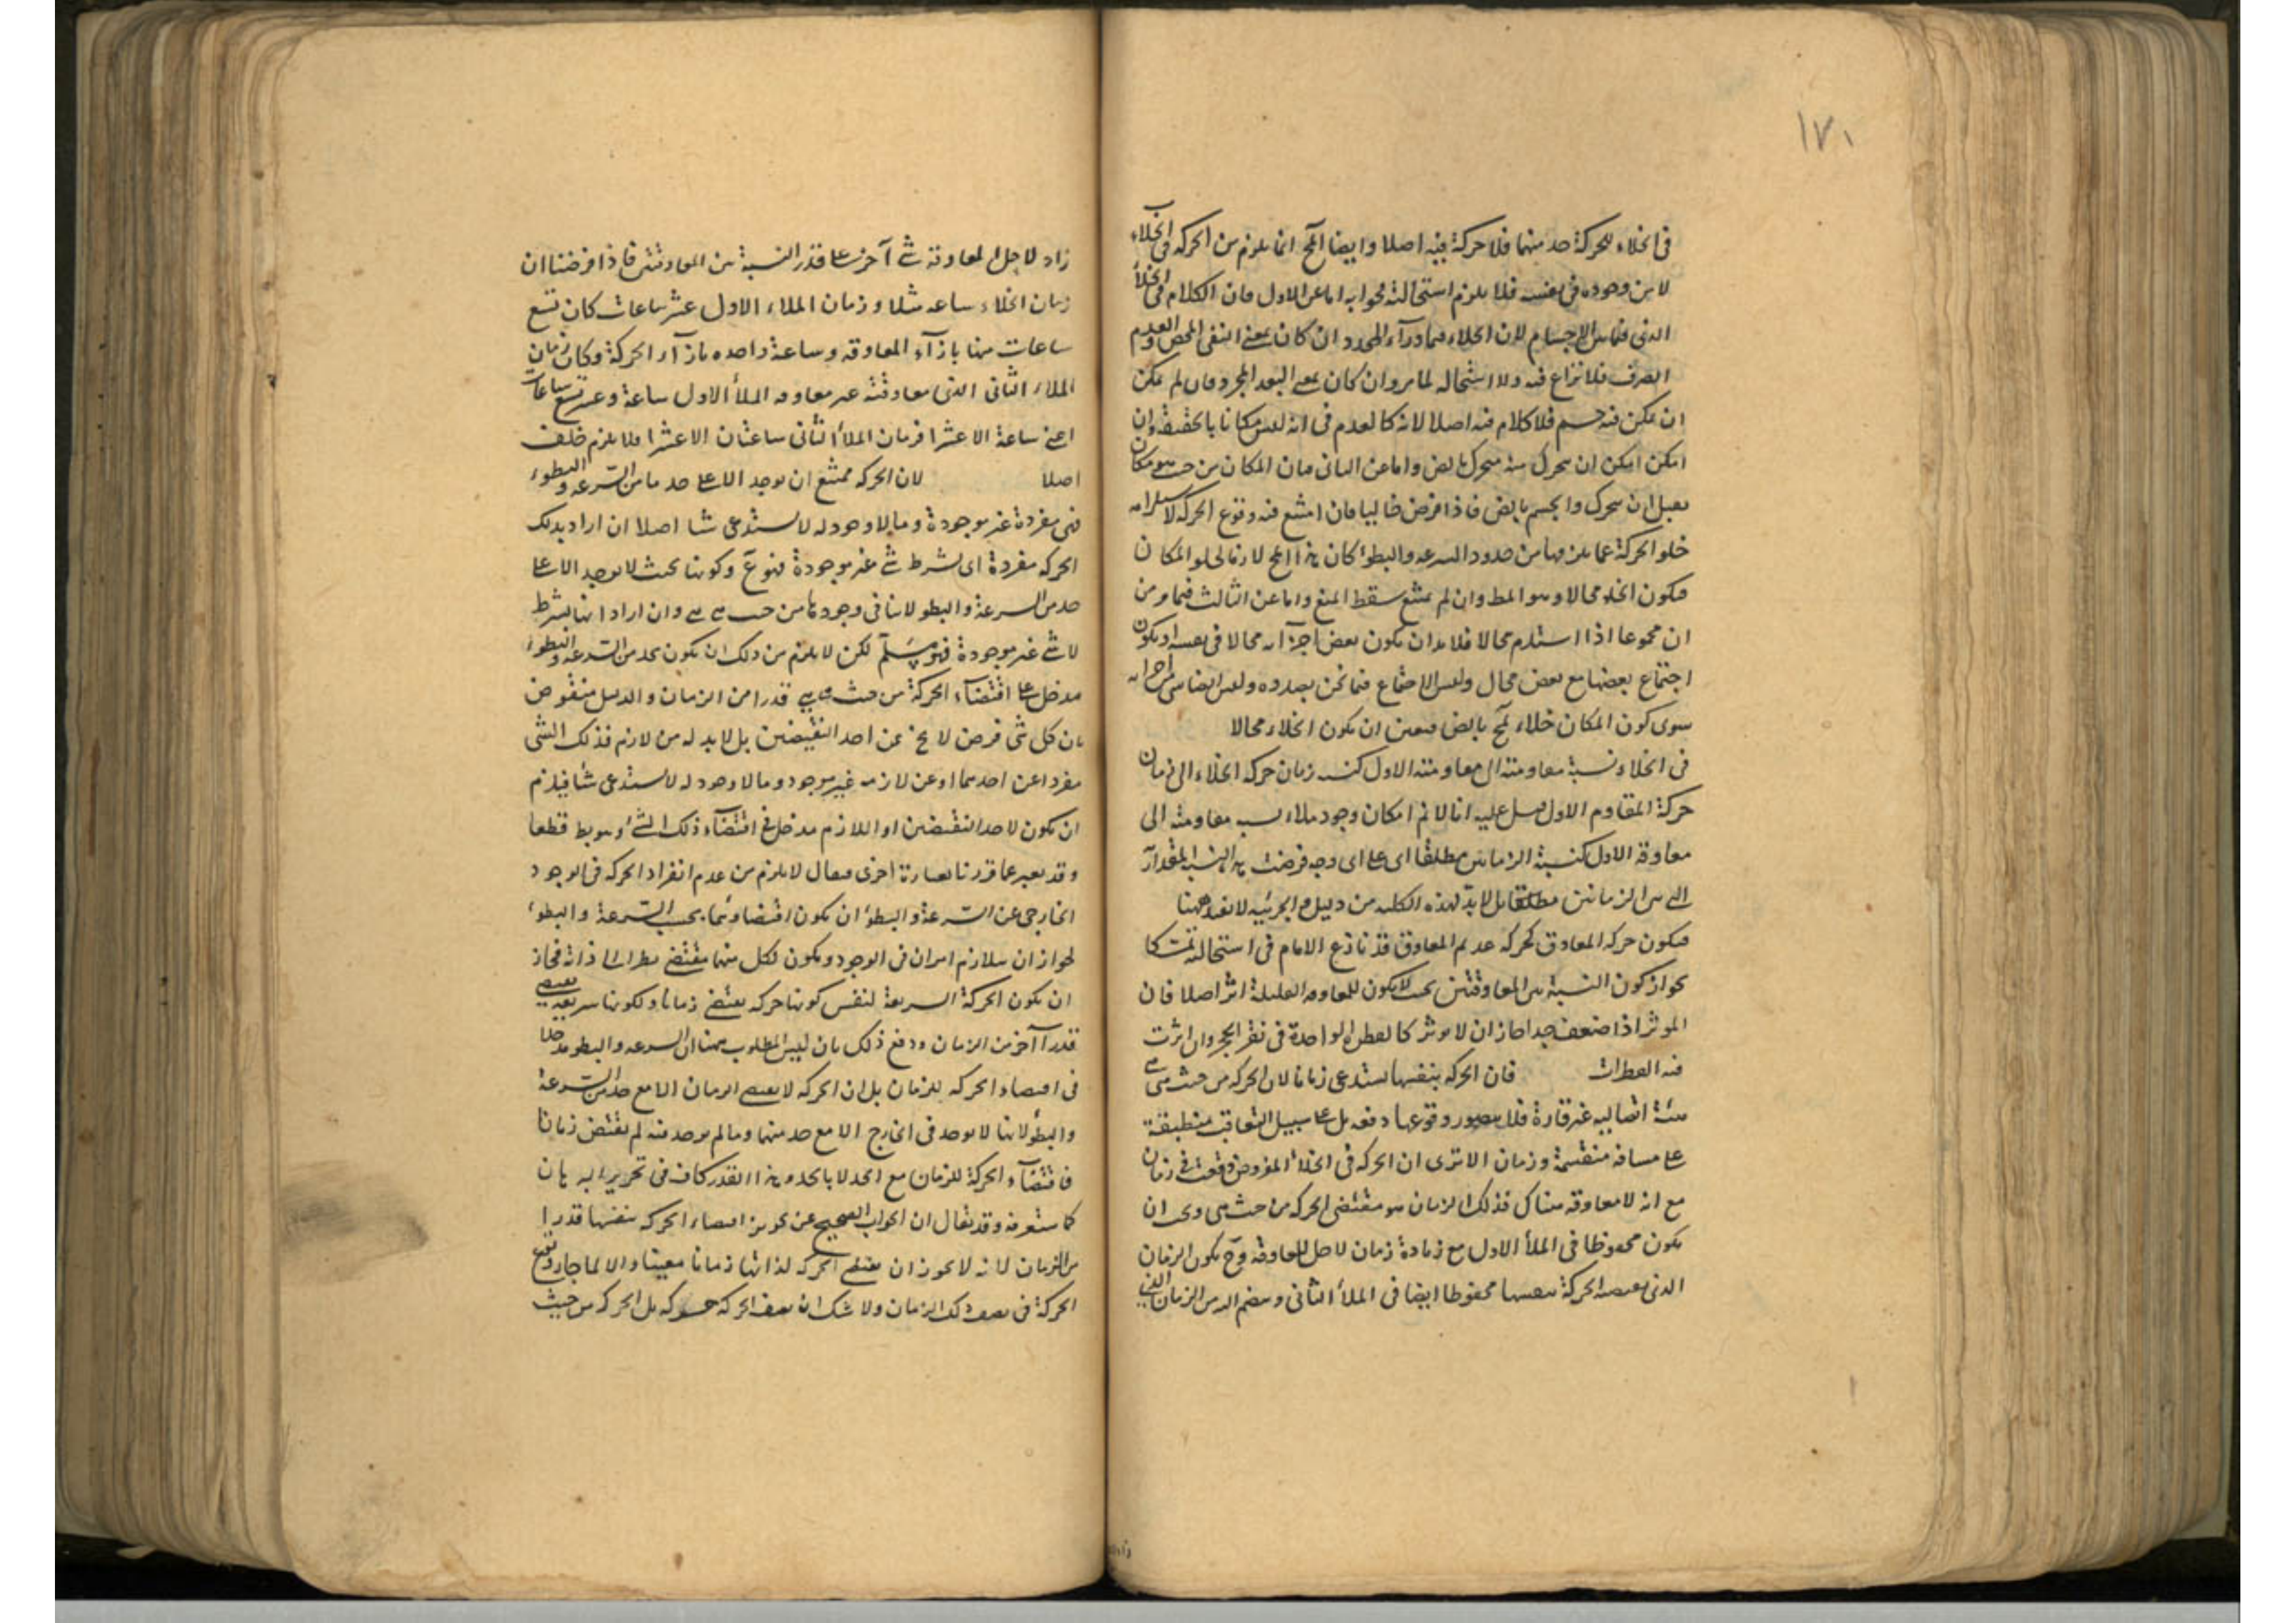 ١٧١
في الخلاء للحركة حد منهما فلا حركة فيه اصلا وايضا المح انما يلزم من الحركة في الخلاء
لا من وجوده في نفسه فلا يلزم استحالته فجوابه اما عن الاول فان الكلام في الخلأ
الذي فيما بين الاجسام لان الخلاء فيما وراء المحدد ان كان بمعنى النفي المحض والعدم
الصرف فلا نزاع فيه ولا استحاله لما مر وان كان بمعنى البعد المجرد فان لم يمكن
ان يمكن فيه جسم فلا كلام فيه اصلا لانه كالعدم في انه ليس مكانا بالحقيقة وان
امكن امكن ان يتحرك منه متحرك بالفرض واما عن الثاني فان المكان من حيث هو مكان
يقبل ان يتحرك والجسم بالفرض فاذا فرض خاليا فان امتنع فيه وقوع الحركة لاستلزامه
خلو الحركة عما يلزمها من حدود السرعه والبطوء كان هذا المح لازما لخلو المكان
فيكون الخلاء محالا وهو المط وان لم يمتنع سقط المنع واما عن الثالث فيما مر من
ان مجموعا اذا استلزم محالا فلا بد ان يكون بعض اجزآئه محالا في نفسه او يكون
اجتماع بعضها مع بعض محال وليس الاجتماع فيما نحن بصدده وليس ايضا شي من اجزائه
سوى كون المكان خلاء لمح بالفرض فتعين ان يكون الخلاء محالا
في الخلاء نسبة معاوقته الى معاوقته الاول كنسبه زمان حركة الخلاء الى زمان
حركة المقاوم الاول قيل عليه انا لا نم امكان وجود ملاء نسبه معاوقته الى
معاوقة الاول كنسبة الزمانين مطلقا اى على اى وجه فرضت هذه النسبة المقدارآ
التي بين الزمانين مطلقا بل لا بد لهذه الكليه من دليل والجزئيه لا تفيد ههنا
فيكون حركه المعاوق كحركه عديم المعاوق قد نازع الامام في استحالته متمسكا
بجواز كون النسبة بين المعاوقتين بحيث لا يكون للمعاوقه القليلة اثر اصلا فان
الموثر اذا ضعف جدا جاز ان لا يوثر كالقطرة الواحدة في نقر الحجر وان اثرت
فيه القطرات فان الحركة بنفسها تستدعي زمانا لان الحركة من حيث هي
هيئة اتصاليه غير قارة فلا يتصور وقوعها دفعه بل على سبيل التعاقب منطبقة
على مسافة منقسمة وزمان الا ترى ان الحركة في الخلاء المفروض وقعت في زمان
مع انه لا معاوقه هناك فذلك الزمان هو مقتضى الحركة من حيث هي ويجب ان
يكون محفوظا في الملأ الاول مع زيادة زمان لاجل المعاوقة وح يكون الزمان
الذي يقتضيه الحركة بنفسها محفوظا ايضا في الملأ الثاني وينضم اليه من الزمان الذي
زاد لاجل المعاوقة شئ آخر على قدر النسبة بين المعاوقتين فاذا فرضنا ان
زمان الخلاء ساعه مثلا وزمان الملاء الاول عشر ساعات كان تسع
ساعات منها بازآء المعاوقه وساعة واحده بازآء الحركة وكان زمان
الملاء الثاني الذي معاوقته عشر معاوقه الملأ الاول ساعة وعشر تسع ساعات
اعني ساعة الا عشرا فزمان الملأ الثاني ساعتان الا عشرا فلا يلزم خلف
اصلا لان الحركه يمتنع ان توجد الا على حد ما من السرعه والبطوء
فهي مفردة غير موجودة وما لا وجود له لا يستدعي شأ اصلا ان اراد بذلك
الحركه مفردة اى بشرط شئ غير موجودة فهو ع وكونها بحيث لا توجد الا على
حد من السرعة والبطو لا ينافي وجودها من حيث هي هي وان اراد انها بشرط
لا شئ غير موجودة فهو مسلم لكن لا يلزم من ذلك ان يكون لحد من السرعه والبطوء
مدخل في اقتضآء الحركة من حيث هي هي قدرا من الزمان والدليل منقوض
بان كل شئ فرض لا يخ عن احد النقيضين بل لا بد له من لازم فذلك الشئ
مفردا عن احدهما او عن لازمه غير موجود وما لا وجود له لا يستدعى شأ فيلزم
ان يكون لاحد النقيضين او اللازم مدخل في اقتضآء ذلك الشئ وهو بط قطعا
وقد يعبر عما قررنا بعبارة اخرى فيقال لا يلزم من عدم انفراد الحركه في الوجود
الخارجي عن السرعة والبطؤ ان يكون اقتضاؤها بحسب السرعة والبطوء
لجواز ان يتلازم امران في الوجود ويكون لكل منهما مقتضى نظرا الى ذاته فجاز
ان يكون الحركة السريعة لنفس كونها حركه يقتضي زمانا ولكونها سريعه يقتضي
قدرا آخر من الزمان ودفع ذلك بان ليس المطلوب ههنا ان للسرعه والبطو مدخلا
في اقتضاء الحركه للزمان بل ان الحركه لا يقتضي الزمان الا مع حد من السرعة
والبطؤ لانها لا توجد في الخارج الا مع حد منهما وما لم يوجد منه لم يقتض زمانا
فاقتضآء الحركة للزمان مع الحد لا بالحد وهذا القدر كاف في تحرير البرهان
كما ستعرفه وقد يقال ان الجواب الصحيح عن تجويز اقتضاء الحركه بنفسها قدرا
من الزمان لانه لا يجوز ان يقتضى الحركه لذاتها زمانا معينا والا لما جاز وقوع
الحركة في نصف ذلك الزمان ولا شك ان نصف الحركة حركه بل الحركه من حيث